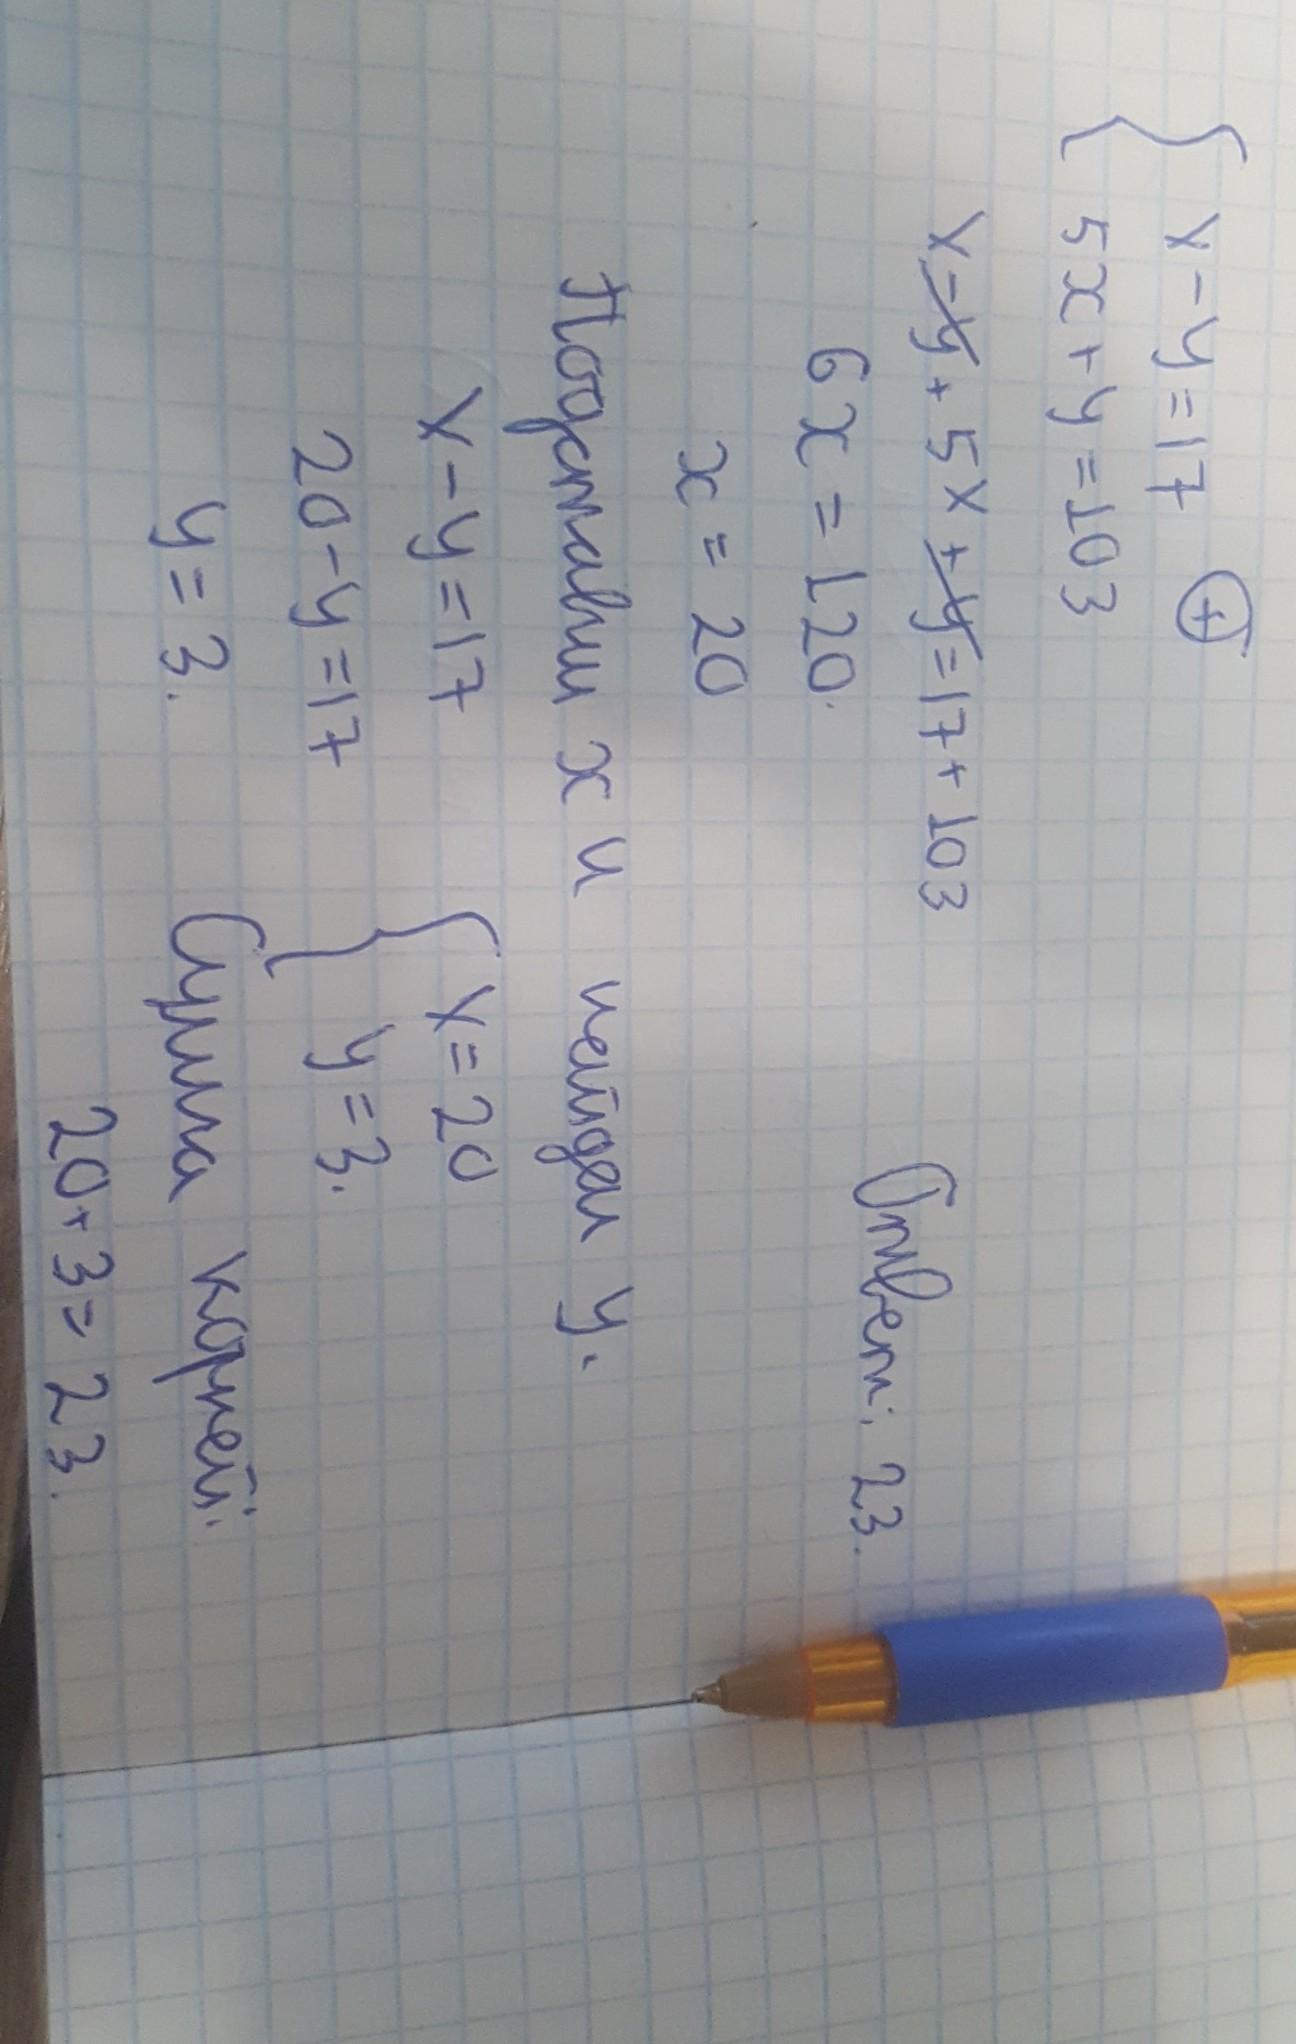 x - y = 17
5x + y = 103
+
x - y + 5x + y = 17 + 103
6x = 120.
x = 20
Подставим x и найдем y.
x - y = 17
20 - y = 17
y = 3.
x = 20
y = 3.
Сумма корней:
20 + 3 = 23.
Ответ: 23.